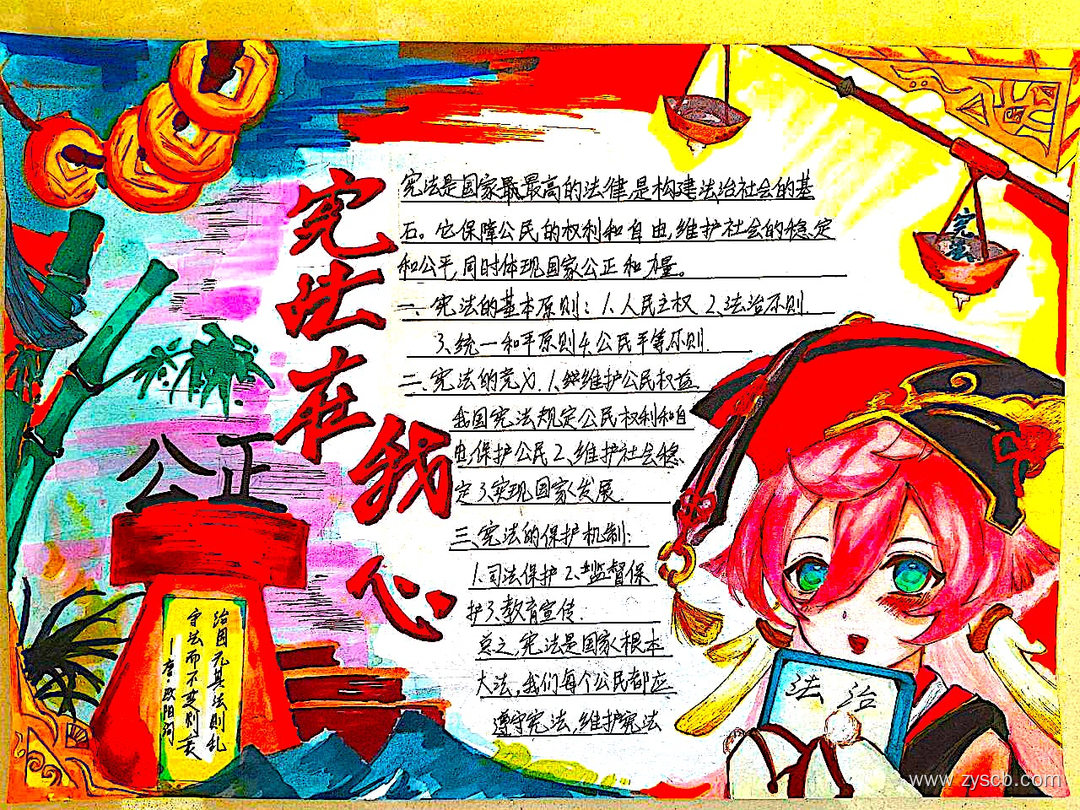 宪法在我心
宪法是国家最最高的法律,是构建法治社会的基
石。它保障公民的权利和自由,维护社会的稳定
和公平,同时体现国家公正和力量。
一、宪法的基本原则:1.人民主权 2.法治原则
3.统一和平原则 4.公民平等原则.
二、宪法的意义.1.维护公民权益
我国宪法规定公民权利和自
由保护公民 2、维护社会稳
定 3.实现国家发展.
三、宪法的保护机制:
1.司法保护 2.监督保
护 3.教育宣传.
总之,宪法是国家根本
大法,我们每个公民都应
遵守宪法,维护宪法
公正
治国无其法则乱
守法而不变则衰
—唐·欧阳询
宪法
法治
www.zyscb.com